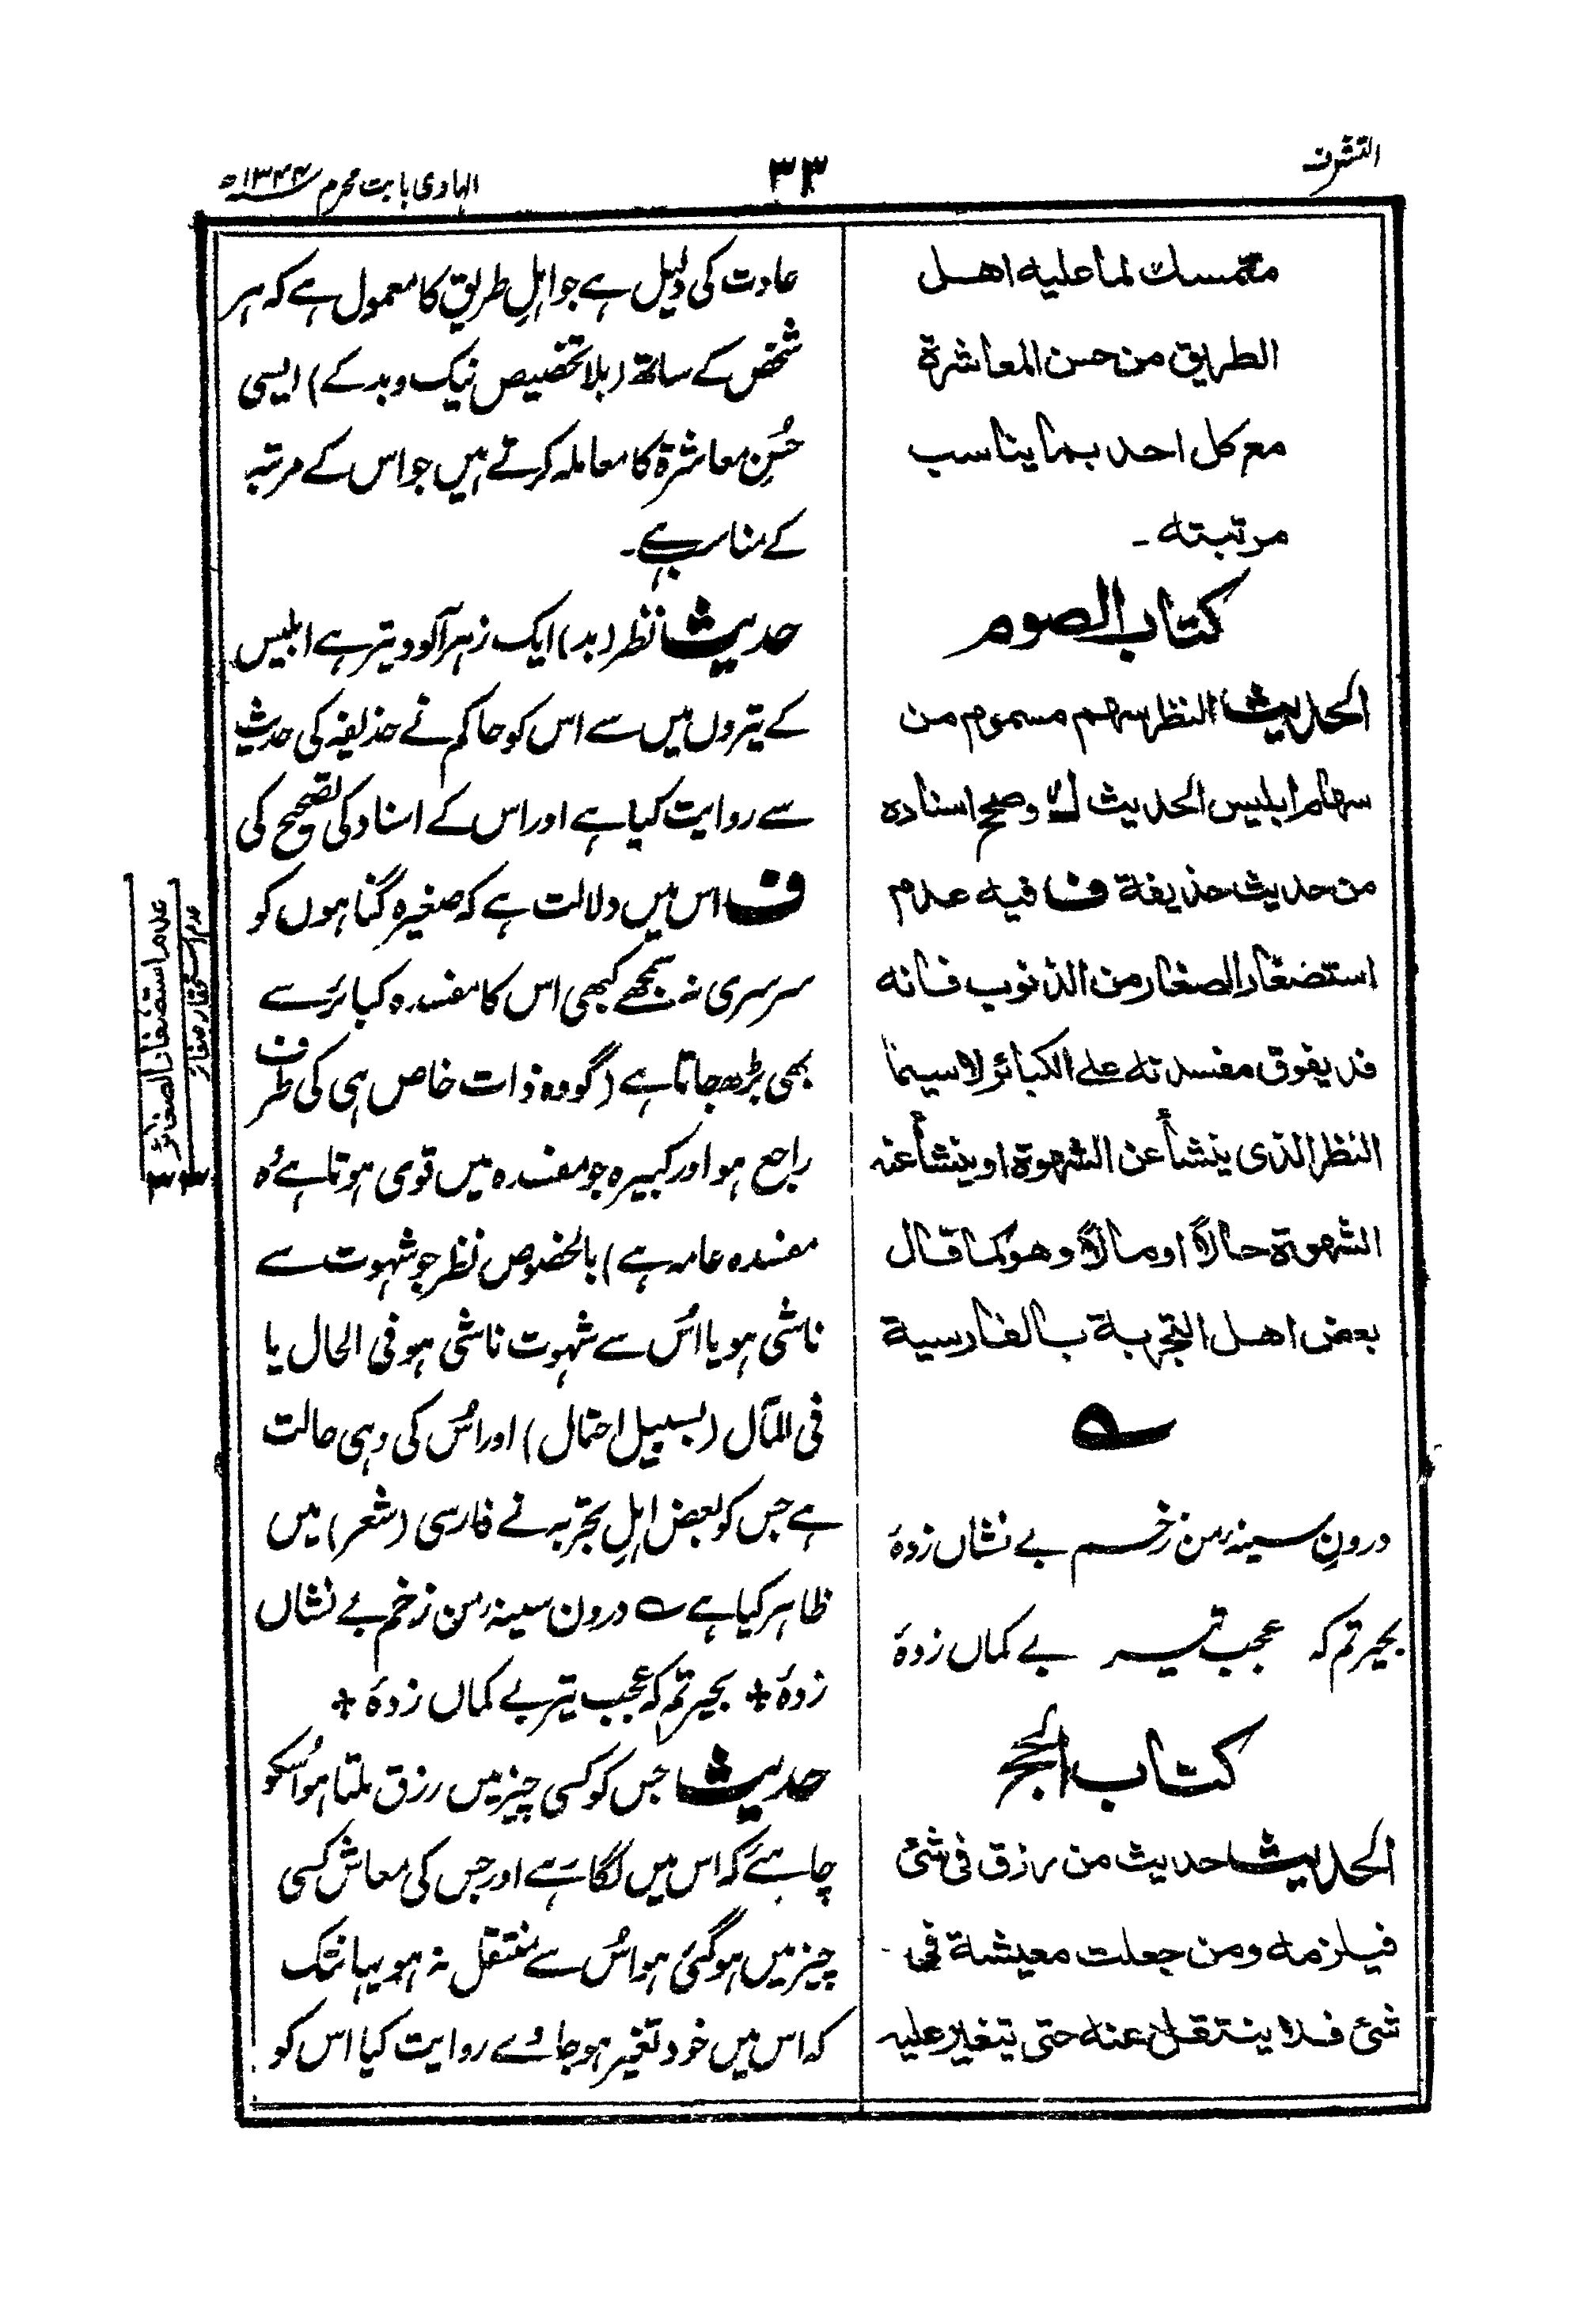 التشرف
٣٣
الہادی بابت محرم ۱۳۴۴ھ
متمسك لما عليه اهل
الطريق من حسن المعاشرة
مع كل احد بما يناسب
مرتبته ۔
كتاب الصوم
الحديث النظر سهم مسموم من
سهام ابليس الحديث ك وصحح اسناده
من حديث حذيفة ف فيه عدم
استصغار الصغار من الذنوب فانه
قد يفوق مفسدته على الكبائر لا سيما
النظر الذى ينشأ عن الشهوة او ينشأ عنه
الشهوة حالاً او مالاً وهو كما قال
بعض اهل التجربة بالفارسية
؎
درونِ سینۂ من زخم بے نشاں زدۂ
بحیرتم کہ عجب تیر بے کماں زدۂ
كتاب الحج
الحديث حديث من رزق فى شئ
فيلزمه ومن جعلت معيشة فى
شئ فلا ينتقل عنه حتى يتغير عليه
عادت کی دلیل ہے جو اہلِ طریق کا معمول ہے کہ ہر
شخص کے ساتھ (بلا تخصیص نیک و بد کے) ایسی
حُسنِ معاشرۃ کا معاملہ کرتے ہیں جو اس کے مرتبہ
کے مناسب ہے۔
حدیث نظر (بد) ایک زہر آلود تیر ہے ابلیس
کے تیروں میں سے اس کو حاکم نے حذیفہ کی حدیث
سے روایت کیا ہے اور اس کے اسناد کی تصحیح کی
ف اس میں دلالت ہے کہ صغیرہ گناہوں کو
سرسری نہ سمجھے کبھی اس کا مفسدہ کبائر سے
بھی بڑھ جاتا ہے (گو وہ ذات خاص ہی کی طرف
راجع ہو اور کبیرہ جو مفسدہ میں قوی ہوتا ہے وُہ
مفسدہ عامہ ہے) بالخصوص نظر جو شہوت سے
ناشی ہو یا اُس سے شہوت ناشی ہو فی الحال یا
فی المآل (بسبیل احتمال) اور اُس کی وہی حالت
ہے جس کو بعض اہلِ تجربہ نے فارسی (شعر) میں
ظاہر کیا ہے ؎ درون سینۂ من زخم بے نشاں
زدۂ + بحیرتم کہ عجب تیر بے کماں زدۂ +
حدیث جس کو کسی چیز میں رزق ملتا ہو اُسکو
چاہئے کہ اس میں لگا رہے اور جس کی معاش کسی
چیز میں ہو گئی ہو اُس سے منتقل نہ ہو یہانتک
کہ اس میں خود تغیر ہو جاوے روایت کیا اس کو
عدم استصغار الصغائر
عدم استحقار صغائر
٣٣